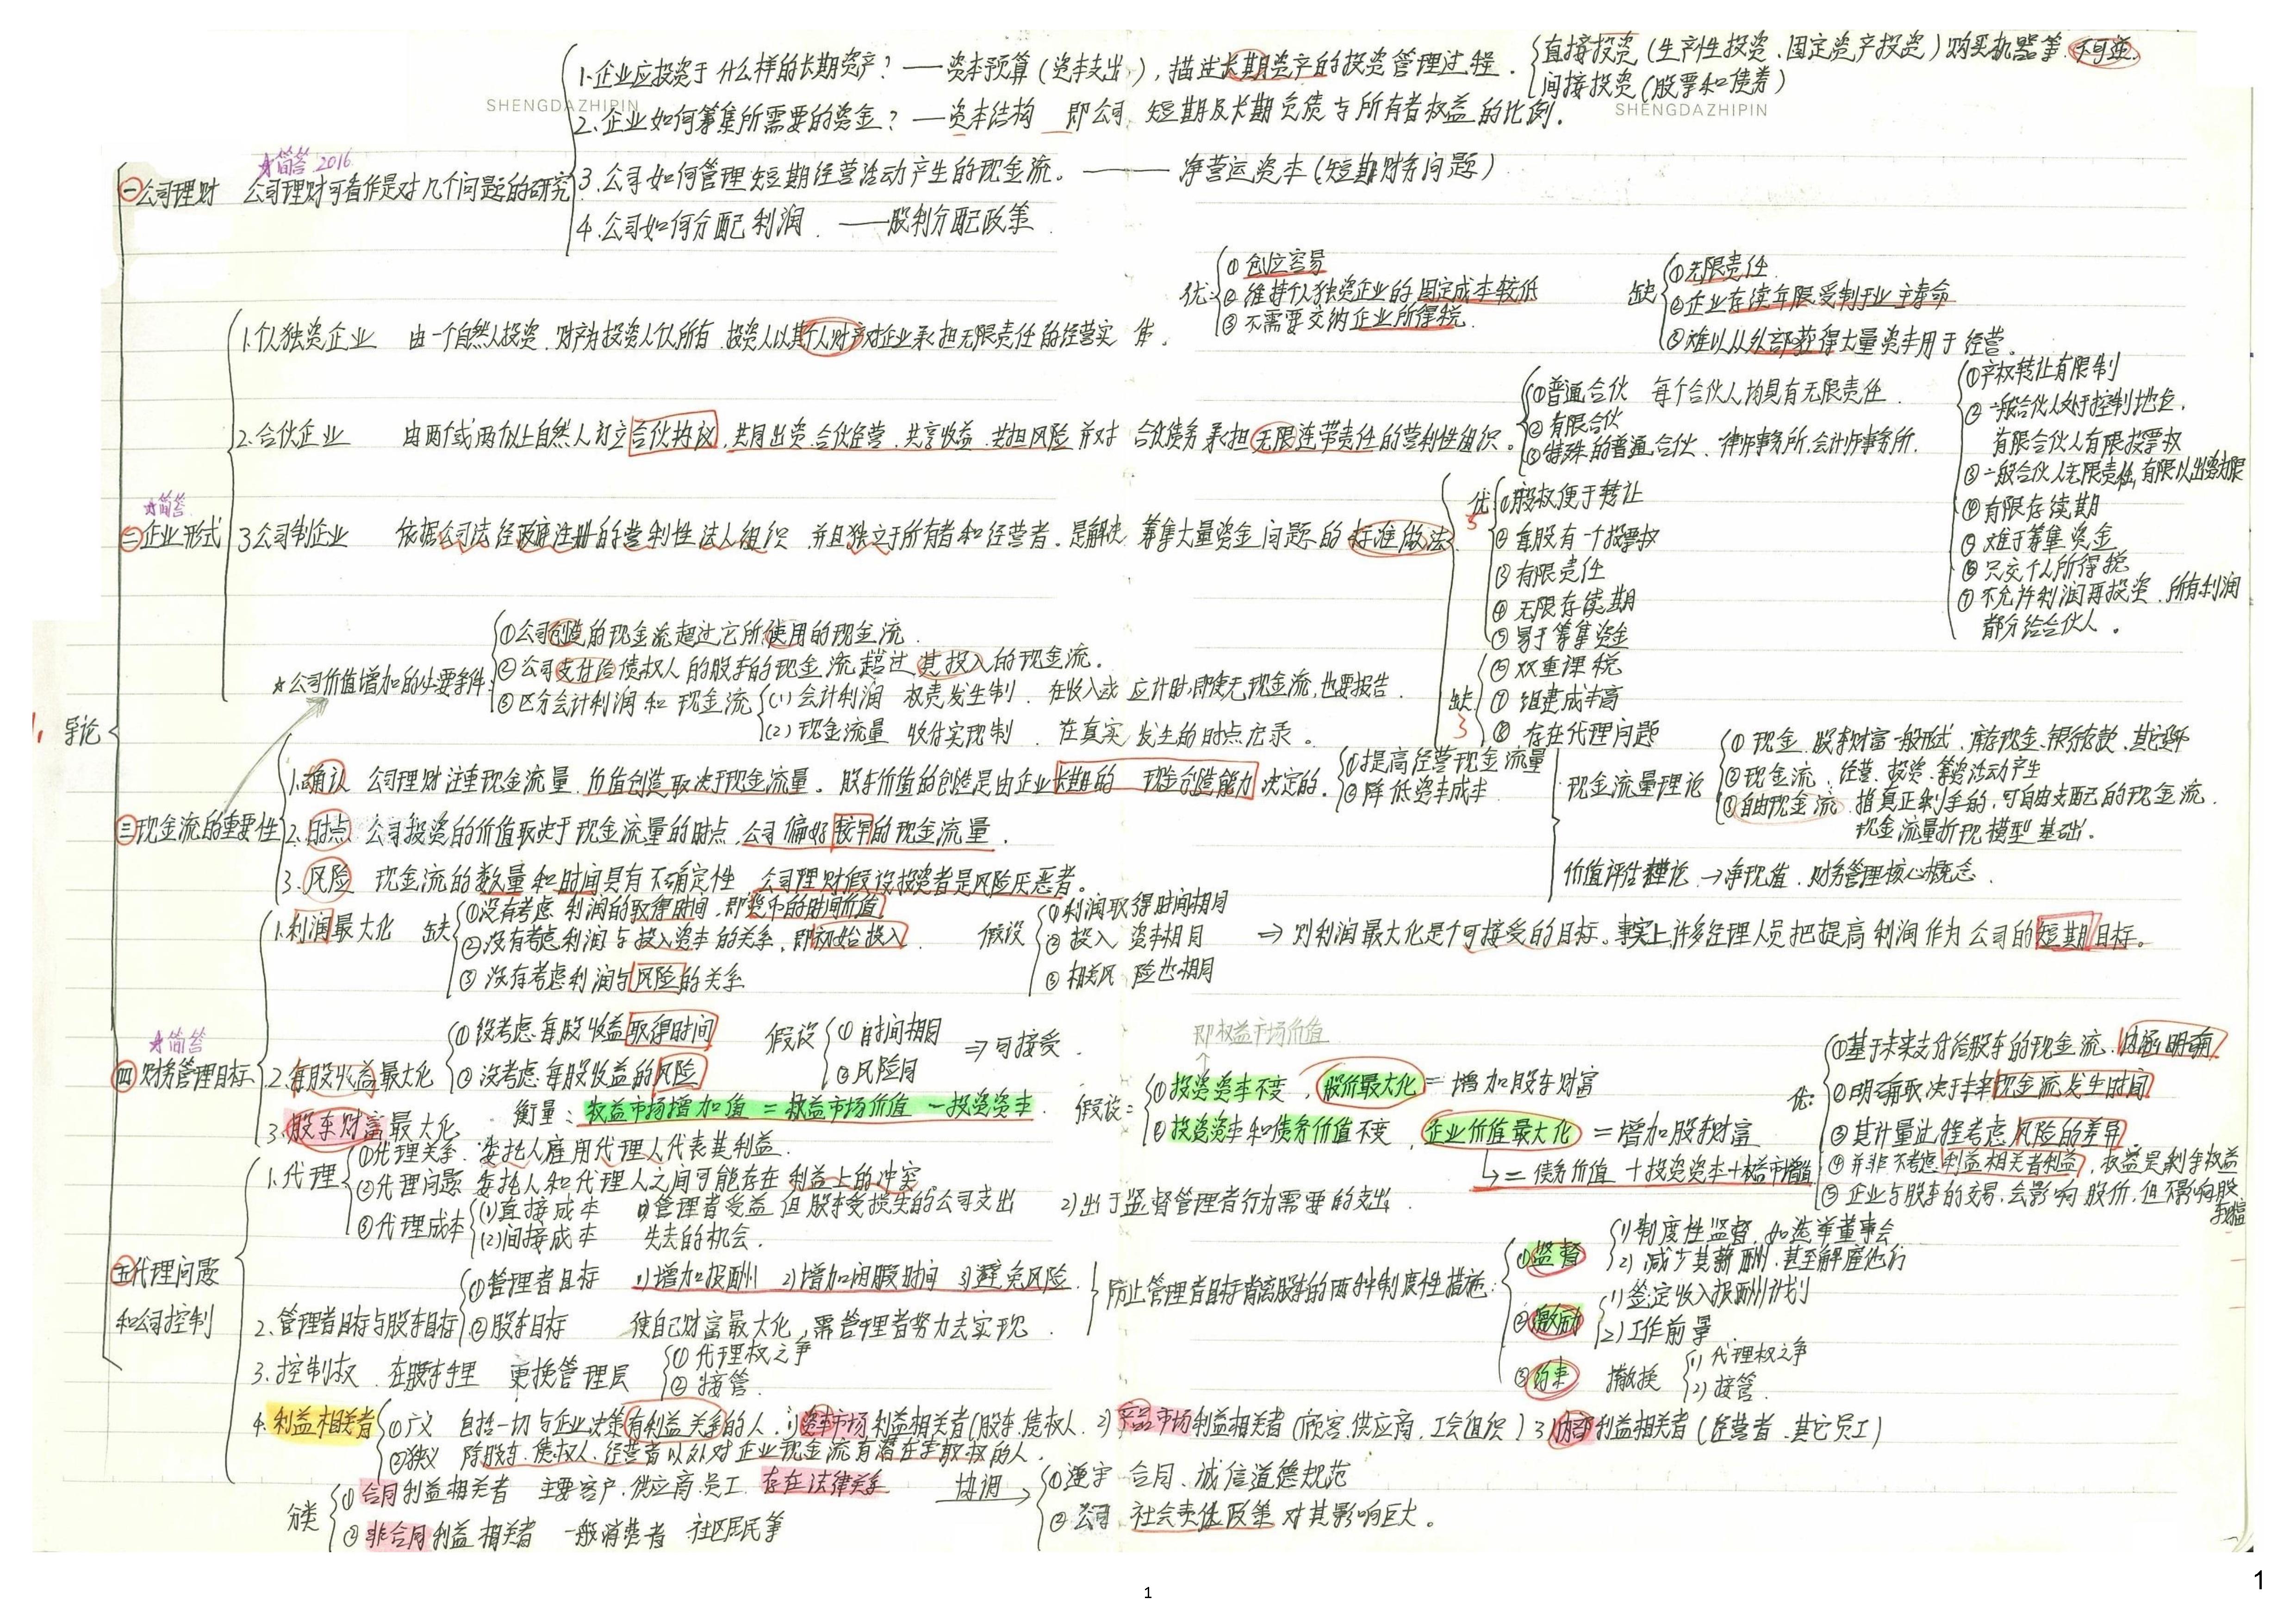 1. 导论
㊀公司理财 公司理财可看作是对几个问题的研究
☆简答 2016
1.企业应投资于什么样的长期资产？——资本预算（资本支出），描述长期资产的投资管理过程.
直接投资（生产性投资、固定资产投资）购买机器等.不可逆.
间接投资（股票和债券）
SHENGDAZHIPIN
SHENGDAZHIPIN
2.企业如何筹集所需要的资金？—资本结构 即公司 短期及长期负债与所有者权益的比例.
3.公司如何管理短期经营活动产生的现金流。——净营运资本（短期财务问题）
4.公司如何分配利润.——股利分配政策
☆简答
㊁企业形式
1.个人独资企业 由一个自然人投资.财产为投资人个人所有.投资人以其个人财产对企业承担无限责任的经营实体.
优：①创立容易
②维持个人独资企业的固定成本较低
③不需要交纳企业所得税.
缺①无限责任
②企业存续年限受制于业主寿命
③难以从外部获得大量资本用于经营.
2.合伙企业 由两个或两个以上自然人订立合伙协议.共同出资.合伙经营.共享收益.共担风险并对合伙债务承担无限连带责任的营利性组织.
①普通合伙 每个合伙人均具有无限责任.
②有限合伙
③特殊的普通合伙、律师事务所,会计师事务所.
①产权转让有限制
②一般合伙人处于控制地位.
有限合伙人有限投票权
③一般合伙人无限责任,有限以出资为限
④有限存续期
⑤难于筹集资金
⑥只交个人所得税
⑦不允许利润再投资.所有利润
都分给合伙人.
3.公司制企业 依据公司法经政府注册的营利性法人组织 并且独立于所有者和经营者.是解决筹集大量资金问题的标准做法
优5①股权便于转让
②每股有一个投票权
③有限责任
④无限存续期
⑤易于筹集资金
缺3⑥双重课税
⑦组建成本高
⑧存在代理问题
☆公司价值增加的必要条件
①公司创造的现金流超过它所使用的现金流.
②公司支付给债权人的股东的现金流超过其投入的现金流.
③区分会计利润和现金流
(1)会计利润 权责发生制.在收入或应计时,即使无现金流,也要报告.
(2)现金流量 收付实现制.在真实发生的时点记录.
㊂现金流的重要性
1.确认 公司理财注重现金流量.价值创造取决于现金流量.股东价值的创造是由企业长期的现金创造能力决定的.
①提高经营现金流量
②降低资本成本
现金流量理论
①现金.股东财富一般形式,库存现金、银行存款、其它货币
②现金流：经营、投资、筹资活动产生
③自由现金流.指真正剩余的,可自由支配的现金流.
现金流量折现模型基础.
价值评估理论→净现值.财务管理核心概念.
2.时点 公司投资的价值取决于现金流量的时点.公司偏好较早的现金流量.
3.风险 现金流的数量和时间具有不确定性 公司理财假设投资者是风险厌恶者.
☆简答
㊃财务管理目标
1.利润最大化 缺①没有考虑利润的取得时间,即货币的时间价值
②没有考虑利润与投入资本的关系,即初始投入.
③没有考虑利润与风险的关系
假设①利润取得时间相同
②投入资本相同
③相关风险也相同
⇒则利润最大化是个可接受的目标.事实上许多经理人员把提高利润作为公司的短期目标.
2.每股收益最大化①没考虑每股收益取得时间
②没考虑每股收益的风险
假设①时间相同
②风险同
⇒可接受.
3.股东财富最大化
衡量：权益市场增加值=权益市场价值-投资资本.
即权益市场价值
假设：①投资资本不变,股价最大化=增加股东财富
②投资资本和债务价值不变.企业价值最大化=增加股东财富
=债务价值+投资资本+权益市增值
优：①基于未来支付给股东的现金流.内涵明确
②明确取决于未来现金流发生时间
③其计量过程考虑风险的差异
④并非不考虑利益相关者利益,权益是剩余权益
⑤企业与股东的交易.会影响股价,但不影响股
东财富
㊄代理问题
和公司控制
1.代理①代理关系.委托人雇用代理人代表其利益.
②代理问题 委托人和代理人之间可能存在利益上的冲突
③代理成本(1)直接成本 1)管理者受益但股东受损失的公司支出 2)出于监督管理者行为需要的支出.
(2)间接成本 失去的机会.
2.管理者目标与股东目标①管理者目标 1)增加报酬 2)增加闲暇时间 3)避免风险.
②股东目标 使自己财富最大化,需管理者努力去实现.
防止管理者目标背离股东的两种制度性措施：
①监督 1)制度性监督,如选举董事会
2)减少其薪酬.甚至解雇他们
②激励 1)签定收入报酬计划
2)工作前景.
③约束 撤换 1)代理权之争
2)接管.
3.控制权.在股东手里 更换管理层①代理权之争
②接管.
4.利益相关者①广义 包括一切与企业决策有利益关系的人.1)资本市场利益相关者(股东.债权人.2)产品市场利益相关者(顾客.供应商.工会组织)3)内部利益相关者(经营者.其它员工)
②狭义 除股东.债权人.经营者以外对企业现金流有潜在索取权的人.
分类①合同利益相关者 主要客户.供应商.员工.存在法律关系
②非合同利益相关者 一般消费者 社区居民等
协调→①遵守合同、诚信道德规范
②公司社会责任政策对其影响巨大.
1
1